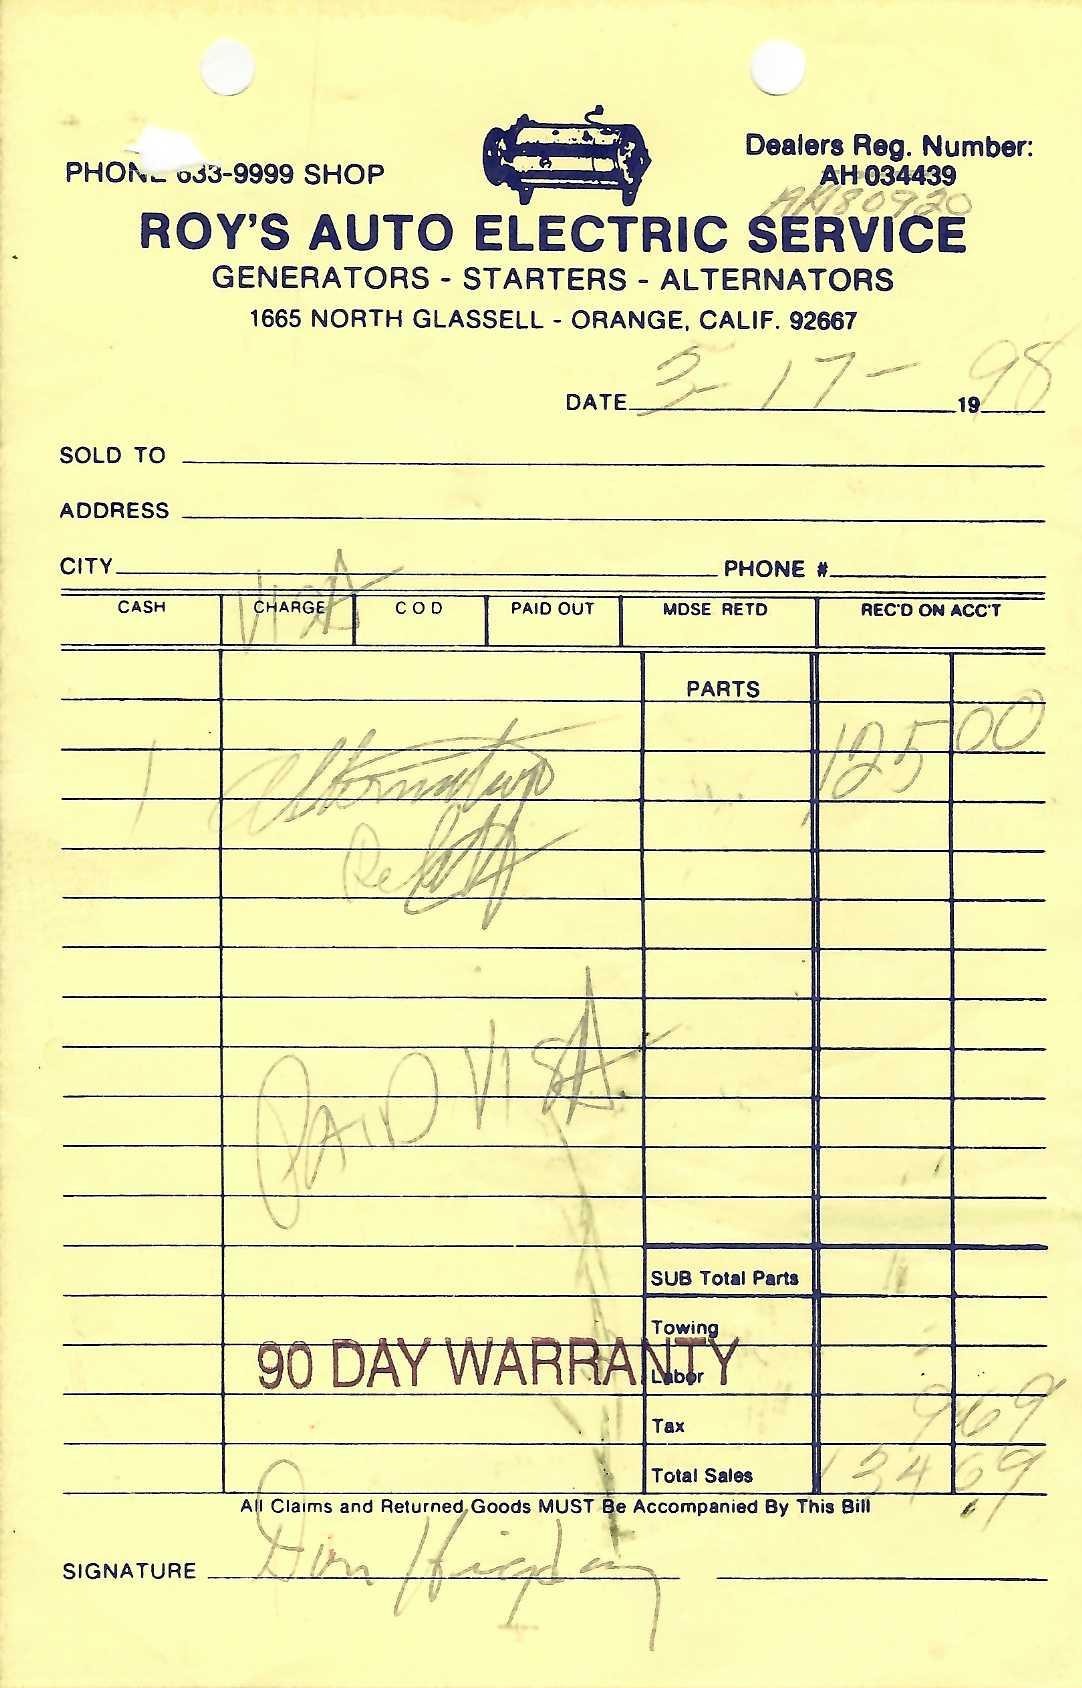 PHONE 633-9999 SHOP
Dealers Reg. Number:
AH 034439
ROY'S AUTO ELECTRIC SERVICE
GENERATORS - STARTERS - ALTERNATORS
1665 NORTH GLASSELL - ORANGE, CALIF. 92667
DATE 17- 1998
SOLD TO
ADDRESS
CITY PHONE #
CASH CHARGE C O D PAID OUT MDSE RETD REC'D ON ACC'T
VISA
PARTS
1 125 00
PAID VISA
SUB Total Parts
Towing
90 DAY WARRANTY
Labor
Tax 9 69
Total Sales 134 69
All Claims and Returned Goods MUST Be Accompanied By This Bill
SIGNATURE Don